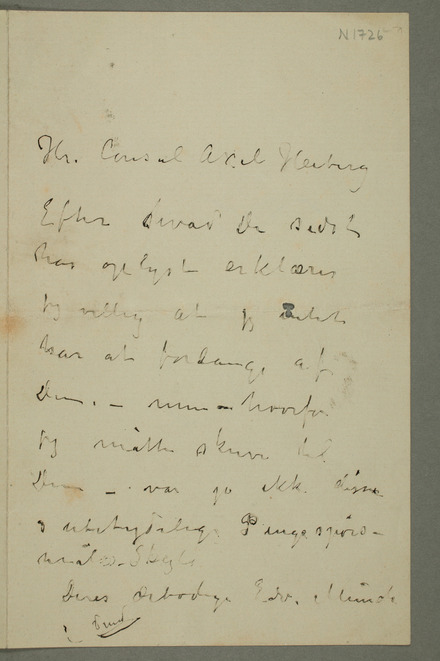 N 1726
Hr. Consul Axel Heiberg
Efter hvad De sidst
har oplyst erklærer
jeg villig at jeg intet
har at forlange af
Dem. – men – hvorfor
jeg måtte skrive til
Dem – var jo ikke disse
ubetydelige Pengespörs-
måls-
Deres ærbödige Edv. Munch